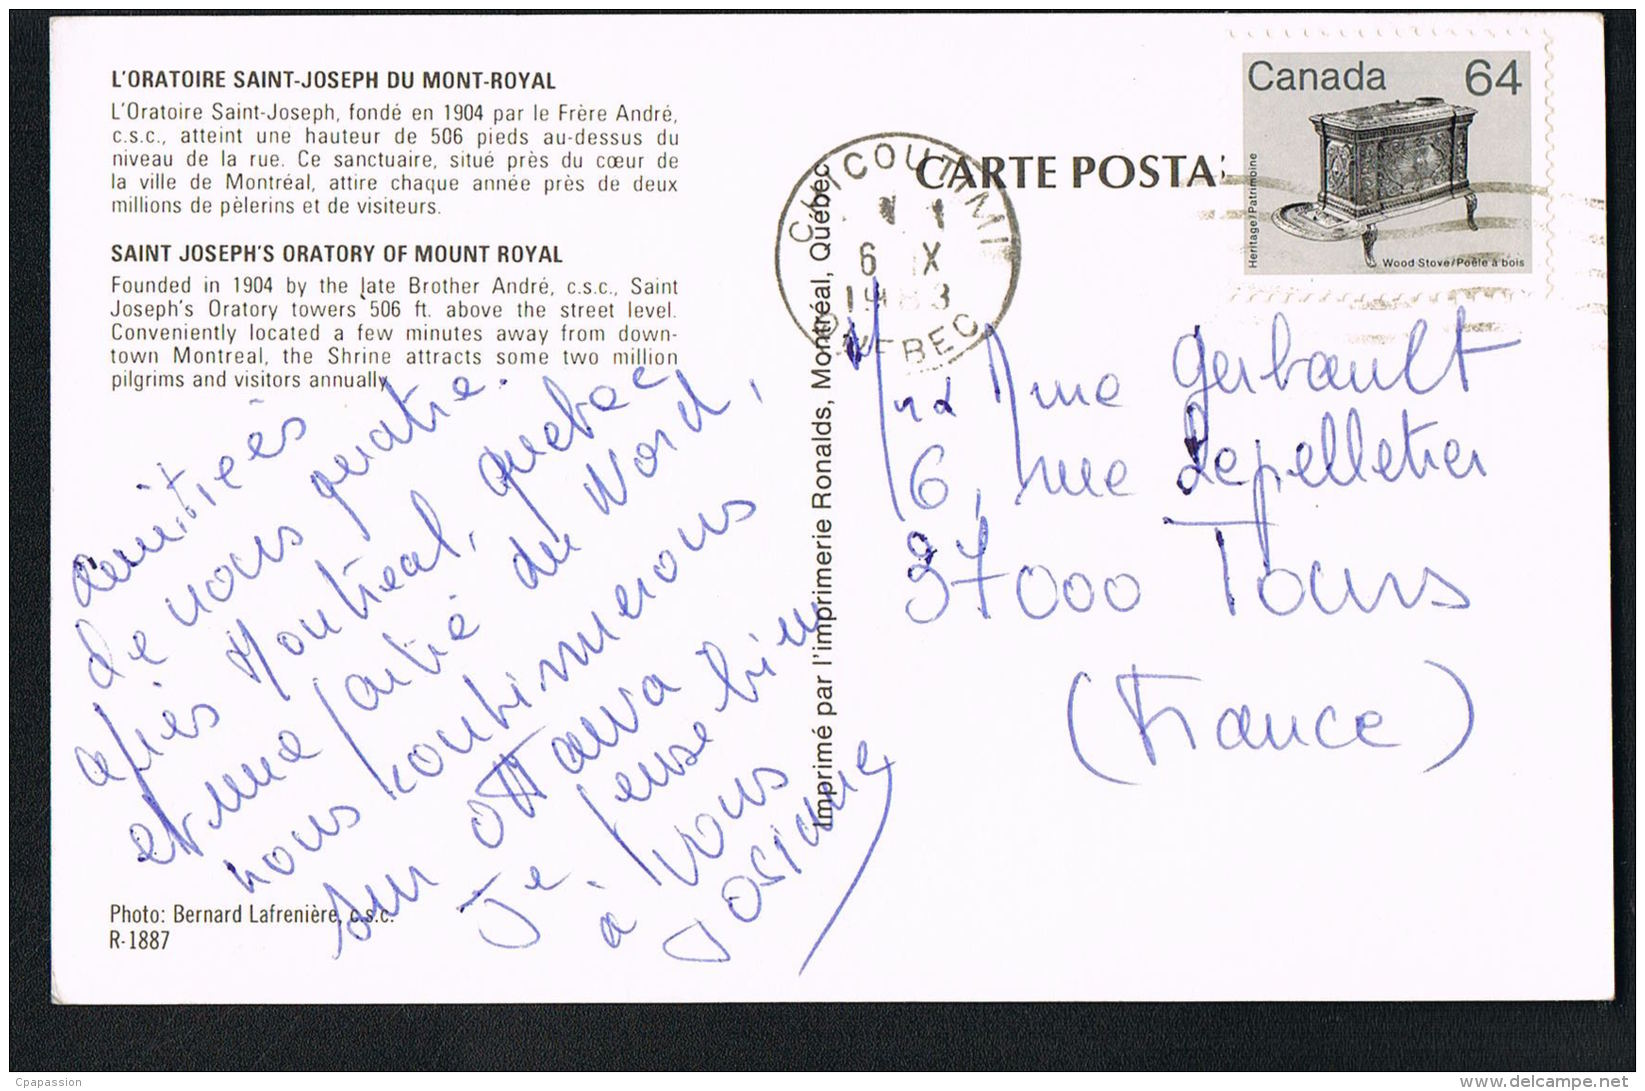 L'ORATOIRE SAINT-JOSEPH DU MONT-ROYAL
L'Oratoire Saint-Joseph, fondé en 1904 par le Frère André,
c.s.c., atteint une hauteur de 506 pieds au-dessus du
niveau de la rue. Ce sanctuaire, situé près du cœur de
la ville de Montréal, attire chaque année près de deux
millions de pèlerins et de visiteurs.
SAINT JOSEPH'S ORATORY OF MOUNT ROYAL
Founded in 1904 by the late Brother André, c.s.c., Saint
Joseph's Oratory towers 506 ft. above the street level.
Conveniently located a few minutes away from down-
town Montreal, the Shrine attracts some two million
pilgrims and visitors annually.
amitiées
de nous quatre.
après Montreal, quebec
et une partie du Nord,
nous continuerons
sur Ottawa
Je pense bien
à vous
Josiane
Photo: Bernard Lafrenière, c.s.c.
R-1887
Imprimé par l'imprimerie Ronalds, Montréal, Québec
CARTE POSTA
CHICOUTIMI
6 IX
1983
QUEBEC
Canada 64
Heritage/Patrimoine
Wood Stove/Poêle à bois
Mme Gerbault
6, rue Lepelletier
37000 Tours
(France)
Cpapassion
www.delcampe.net